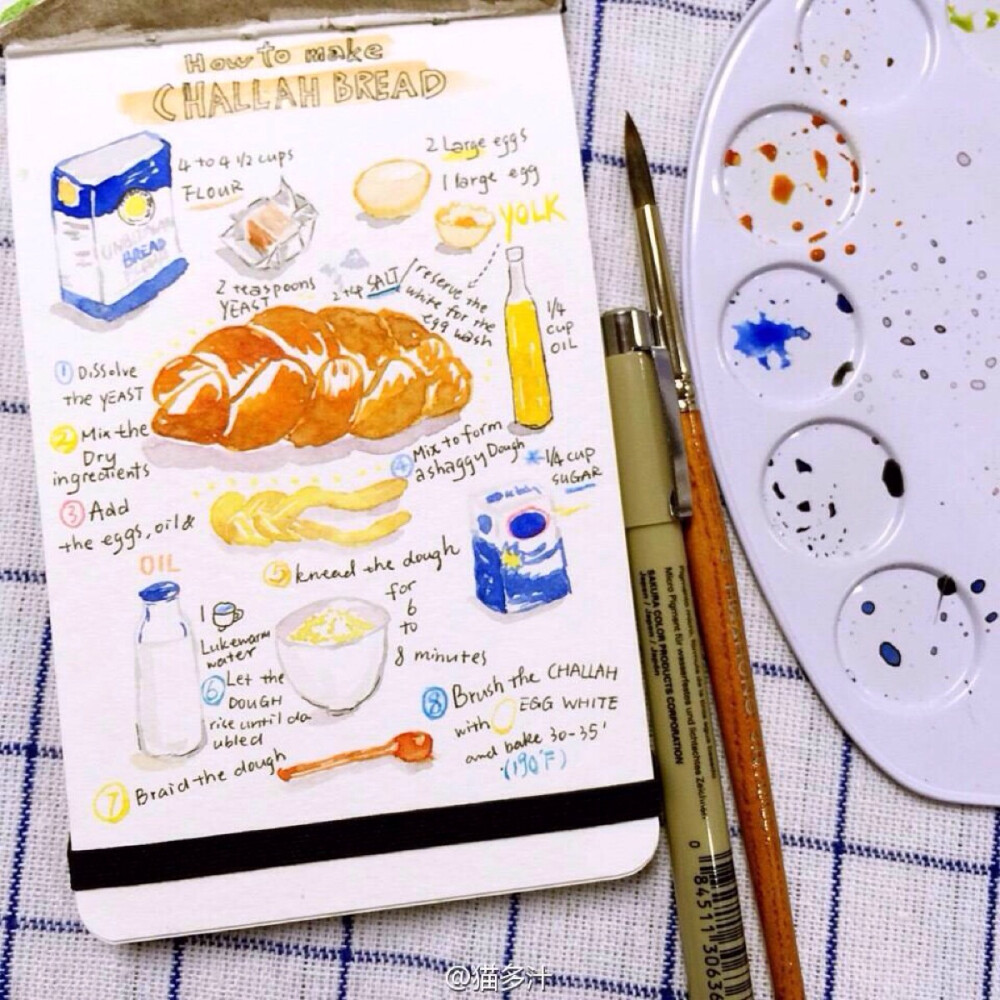 How to make
CHALLAH BREAD
4 to 4 1/2 cups
FLOUR
2 Large eggs
1 large egg
YOLK
BREAD
2 teaspoons
YEAST
2 tsp SALT
reserve the
white for the
egg wash
1/4
CUP
OIL
1 Dissolve
the YEAST
2 Mix the
Dry
ingredients
3 Add
the eggs, oil &
4 Mix to form
a shaggy Dough
1/4 cup
SUGAR
OIL
5 knead the dough
for
6
to
8 minutes
1
Lukewarm
water
6 Let the
DOUGH
rise until do
ubled
7 Braid the dough
8 Brush the CHALLAH
with EGG WHITE
and bake 30-35'
(190°F)
Micro Pigment für wasserfestes und lichtechtes Zeichnen
SAKURA COLOR PRODUCTS CORPORATION
Japan / Japan / Japon
0 84511 30636
@猫多汁